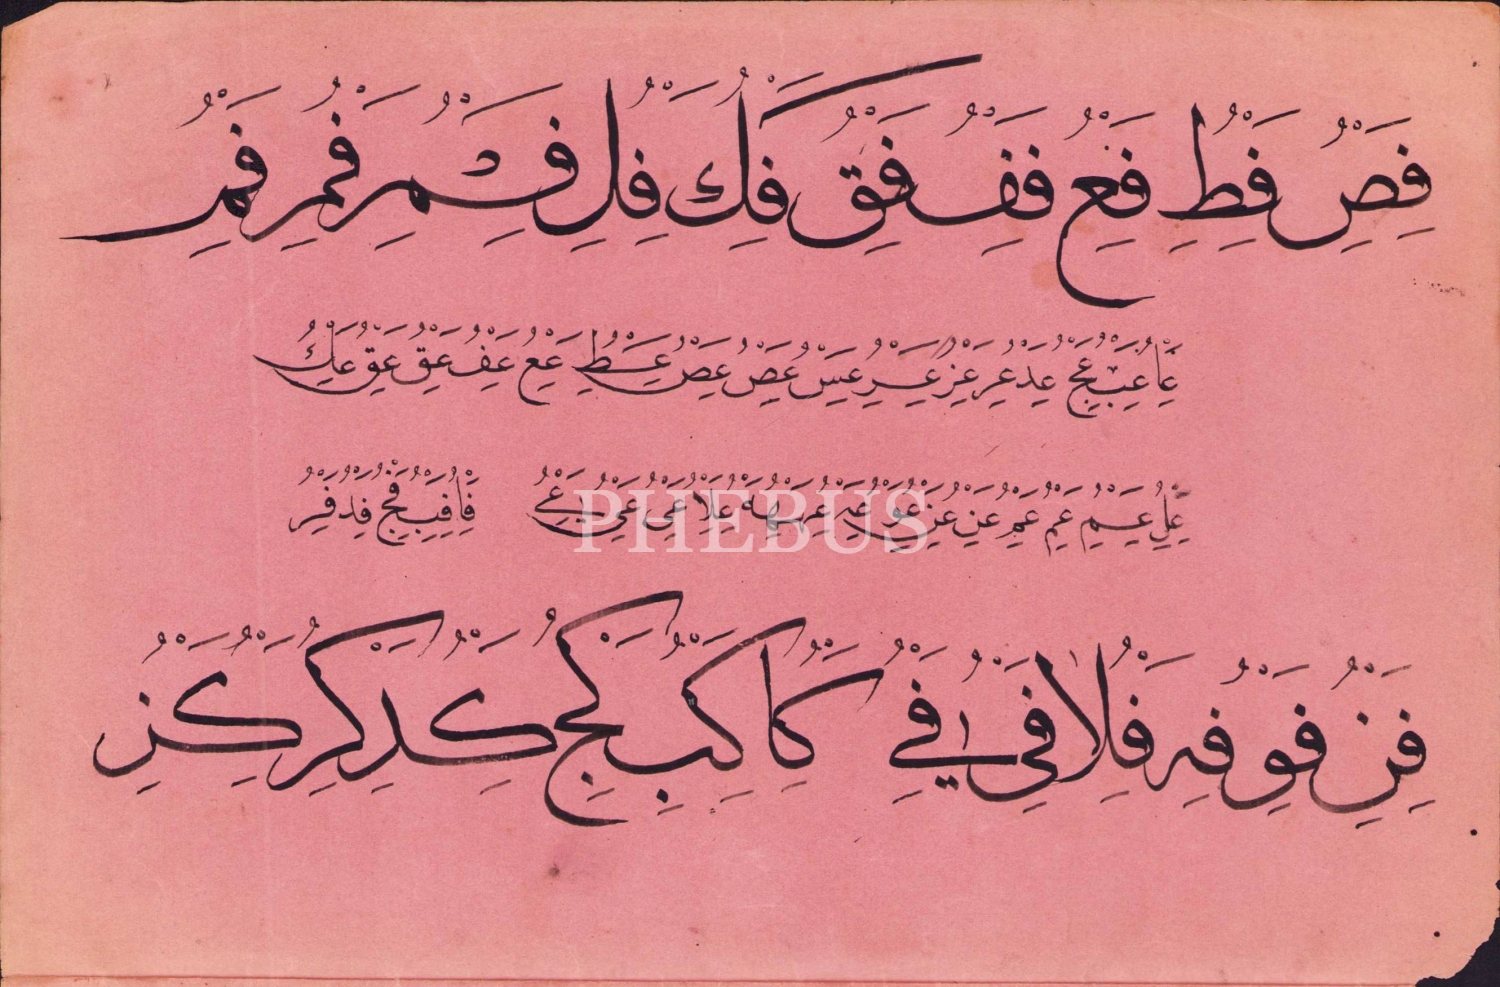 فص فط فع فف فق فك فل فم فم فم
عا عب عج عد عر عر عر عس عص عص عط عع عف عق عق عك
عل عم عم عم عن عن عو عه عهه علا عى عى عے فا فب فج فد فر
فن فو فه فلا فى فے كا كب كج كد كر كر
PHEBUS